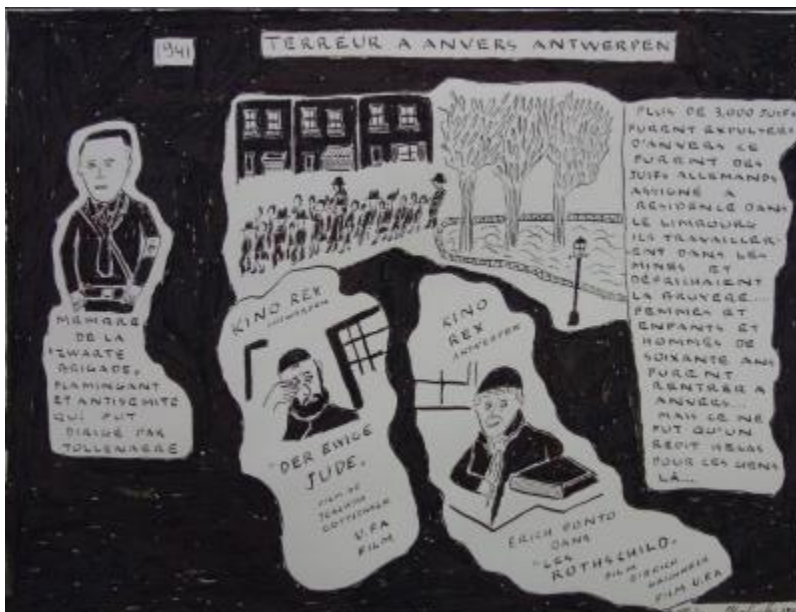 1941
TERREUR A ANVERS ANTWERPEN
MEMBRE
DE LA
"ZWARTE
BRIGADE"
FLAMINGANT
ET ANTISEMITE
QUI FUT
DIRIGE PAR
TOLLENAERE
KINO REX
ANTWERPEN
"DER EWIGE
JUDE"
FILM DE
U.FA
FILM
KINO
REX
ANTWERPEN
ERICH PONTO
DANS
"LES
ROTHSCHILD"
FILM
FILM U.FA
PLUS DE 3,000 JUIFS
FURENT EXPULSERS
D'ANVERS CE
FURENT DES
JUIFS ALLEMANDS
ASSIGNE A
RESIDENCE DANS
LE LIMBOURG
ILS TRAVAILLER-
ENT DANS LES
MINES ET
DEFRICHAIENT
LA BRUYERE...
FEMMES ET
ENFANTS ET
HOMMES DE
SOIXANTE ANS
FURENT
RENTRER A
ANVERS...
MAIS CE NE
FUT QU'UN
REDIT HELAS
POUR CES GENS
LÀ...